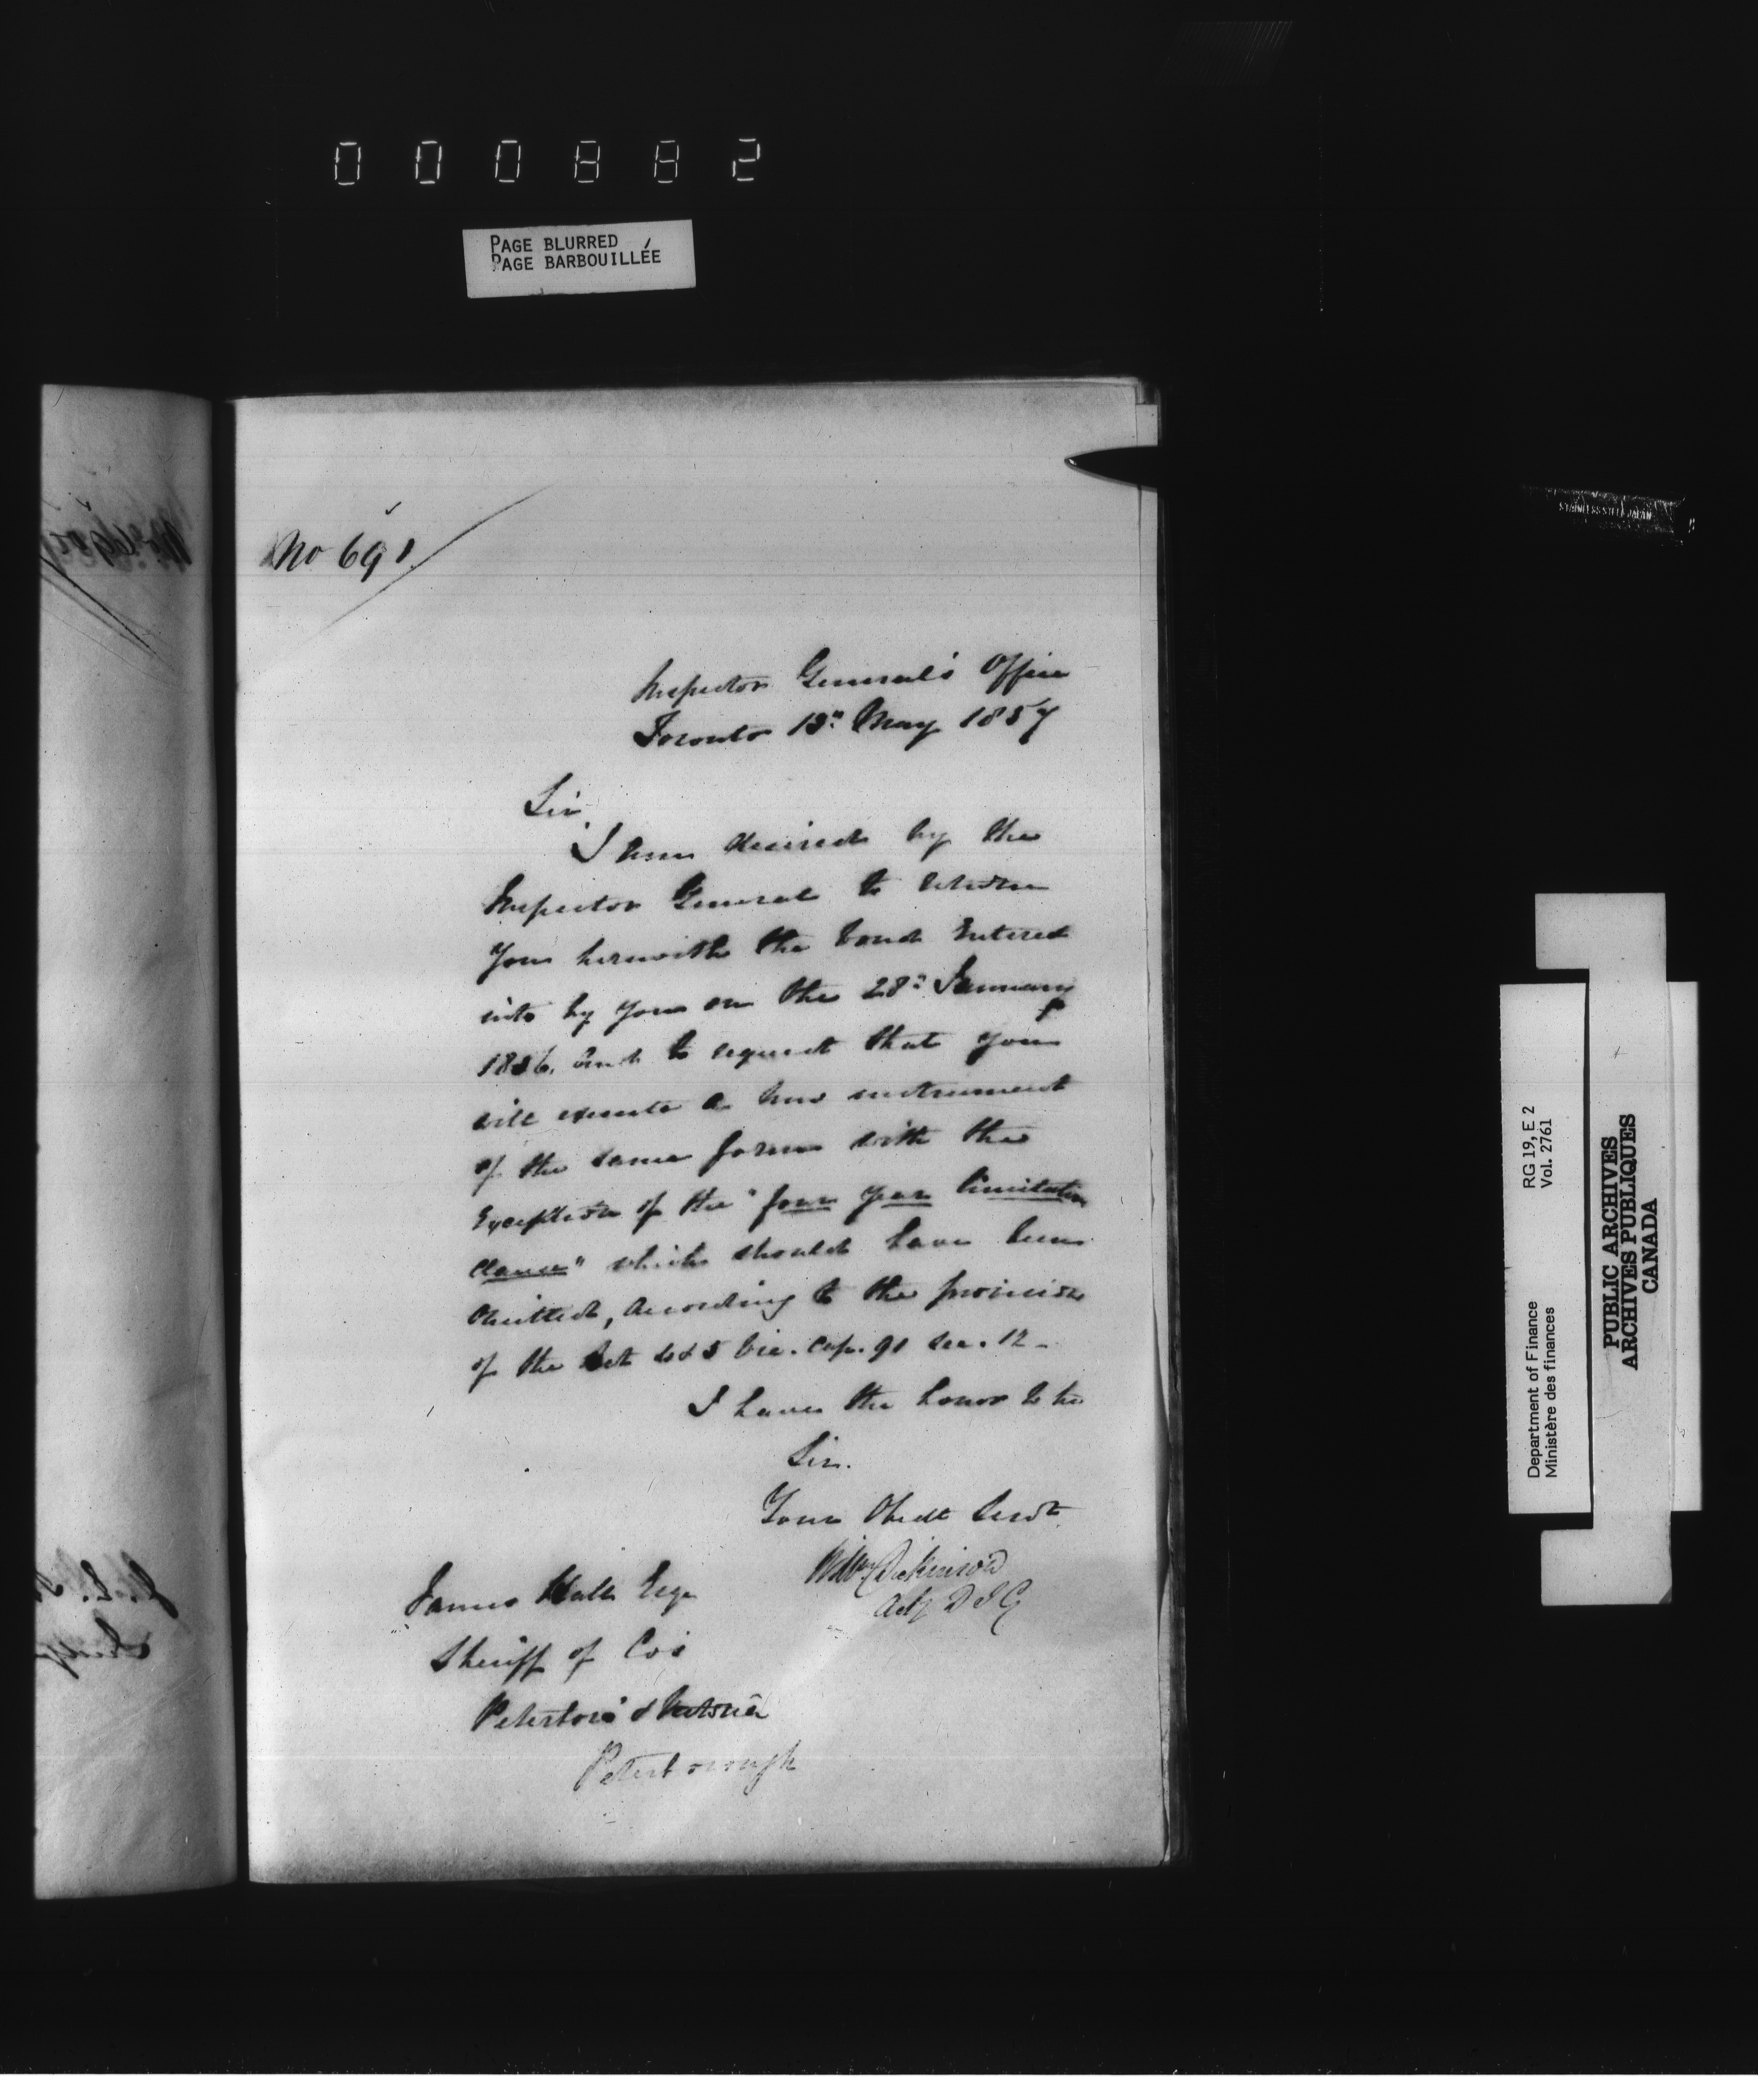 000882
PAGE BLURRED
PAGE BARBOUILLÉE
No 691
Inspector General's Office
Toronto 13" May 1857
Sir,
I am desired by the
Inspector General to return
you herewith the bond Entered
into by you on the 28" January
1856, and to request that you
will execute a new instrument
of the same form with the
Exception of the "four year limitation
clause" which should have been
Omitted, according to the provision
of the Act 4 & 5 Vic. Cap. 91 Sec. 12 -
I have the honor to be
Sir.
Your Obedt Servt
Wm Dickinson
Actg D I G
James Hall Esqr
Sheriff of Cos
Peterboro' & Victoria
Peterborough
STAINLESS STEEL JAPAN
RG 19, E 2
Vol. 2761
Department of Finance
Ministère des finances
PUBLIC ARCHIVES
ARCHIVES PUBLIQUES
CANADA